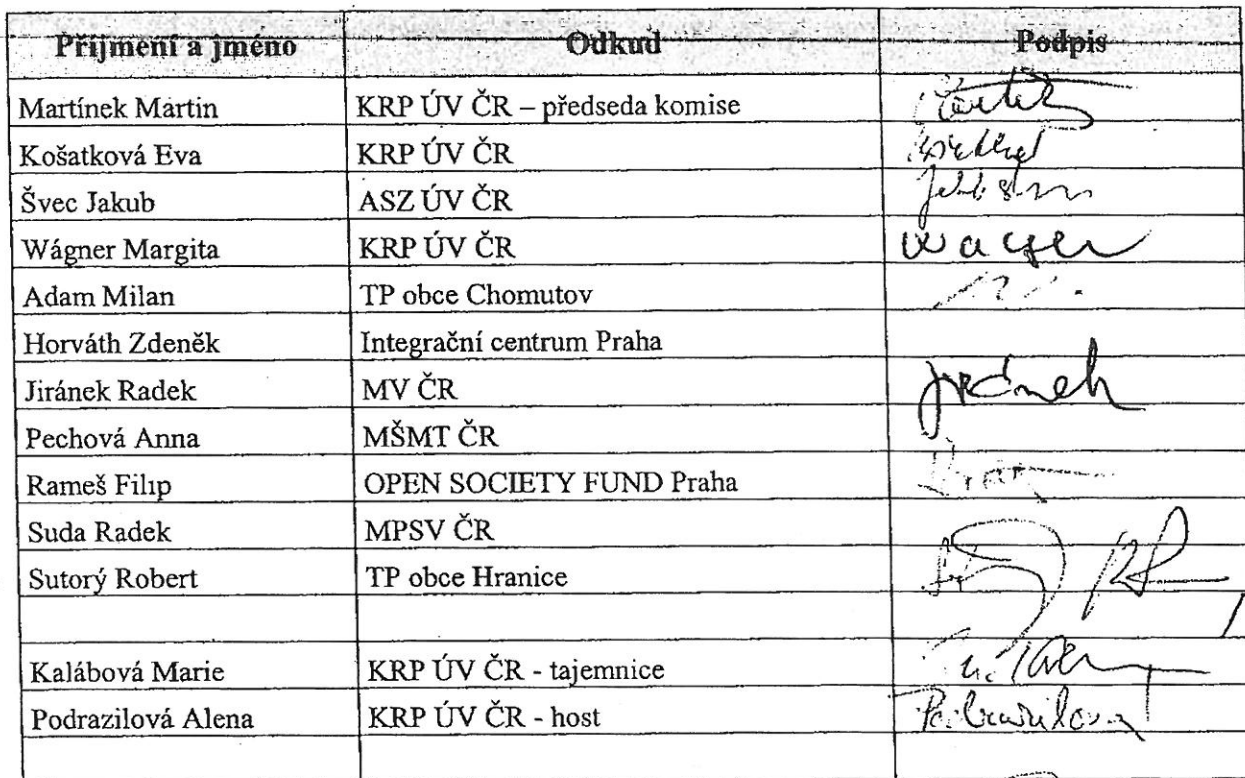 Příjmení a jméno Odkud Podpis
Martínek Martin KRP ÚV ČR – předseda komise
Košatková Eva KRP ÚV ČR
Švec Jakub ASZ ÚV ČR
Wágner Margita KRP ÚV ČR
Adam Milan TP obce Chomutov
Horváth Zdeněk Integrační centrum Praha
Jiránek Radek MV ČR
Pechová Anna MŠMT ČR
Rameš Filip OPEN SOCIETY FUND Praha
Suda Radek MPSV ČR
Sutorý Robert TP obce Hranice
Kalábová Marie KRP ÚV ČR - tajemnice
Podrazilová Alena KRP ÚV ČR - host